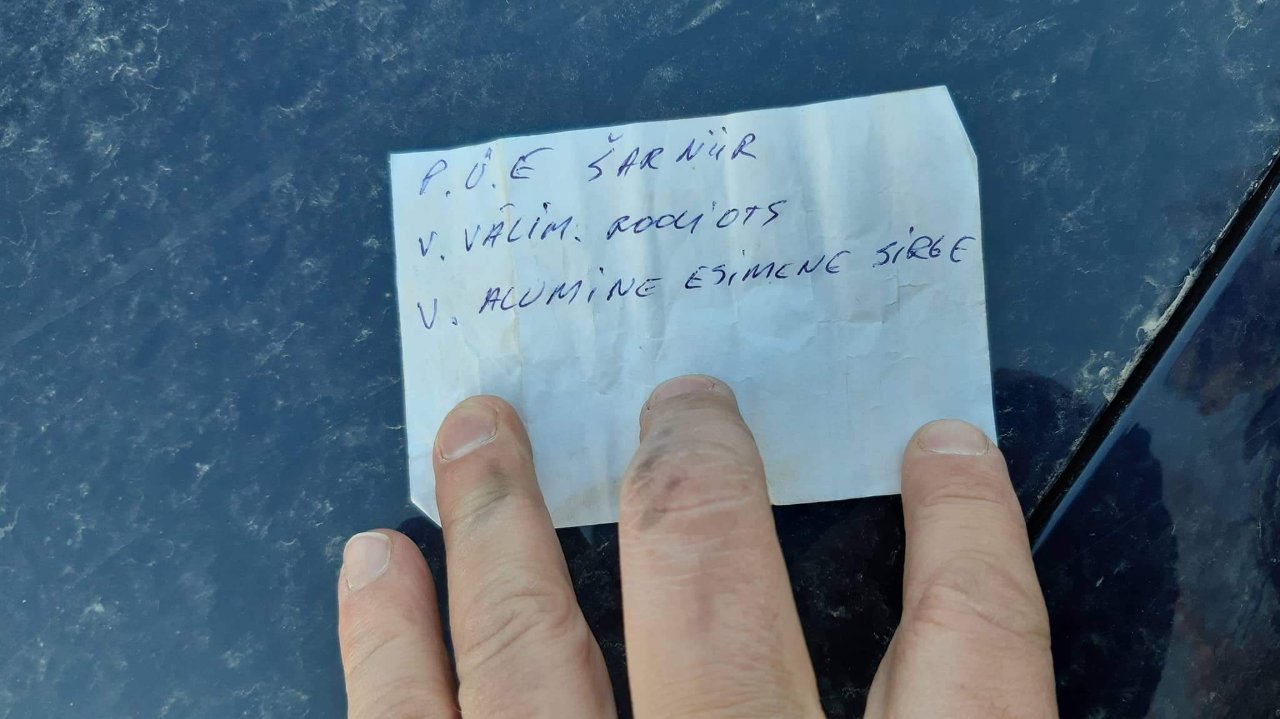 P. Ü. E ŠARNIIR
V. VÄLIM. ROOLIOTS
V. ALUMINE ESIMENE SIRGE